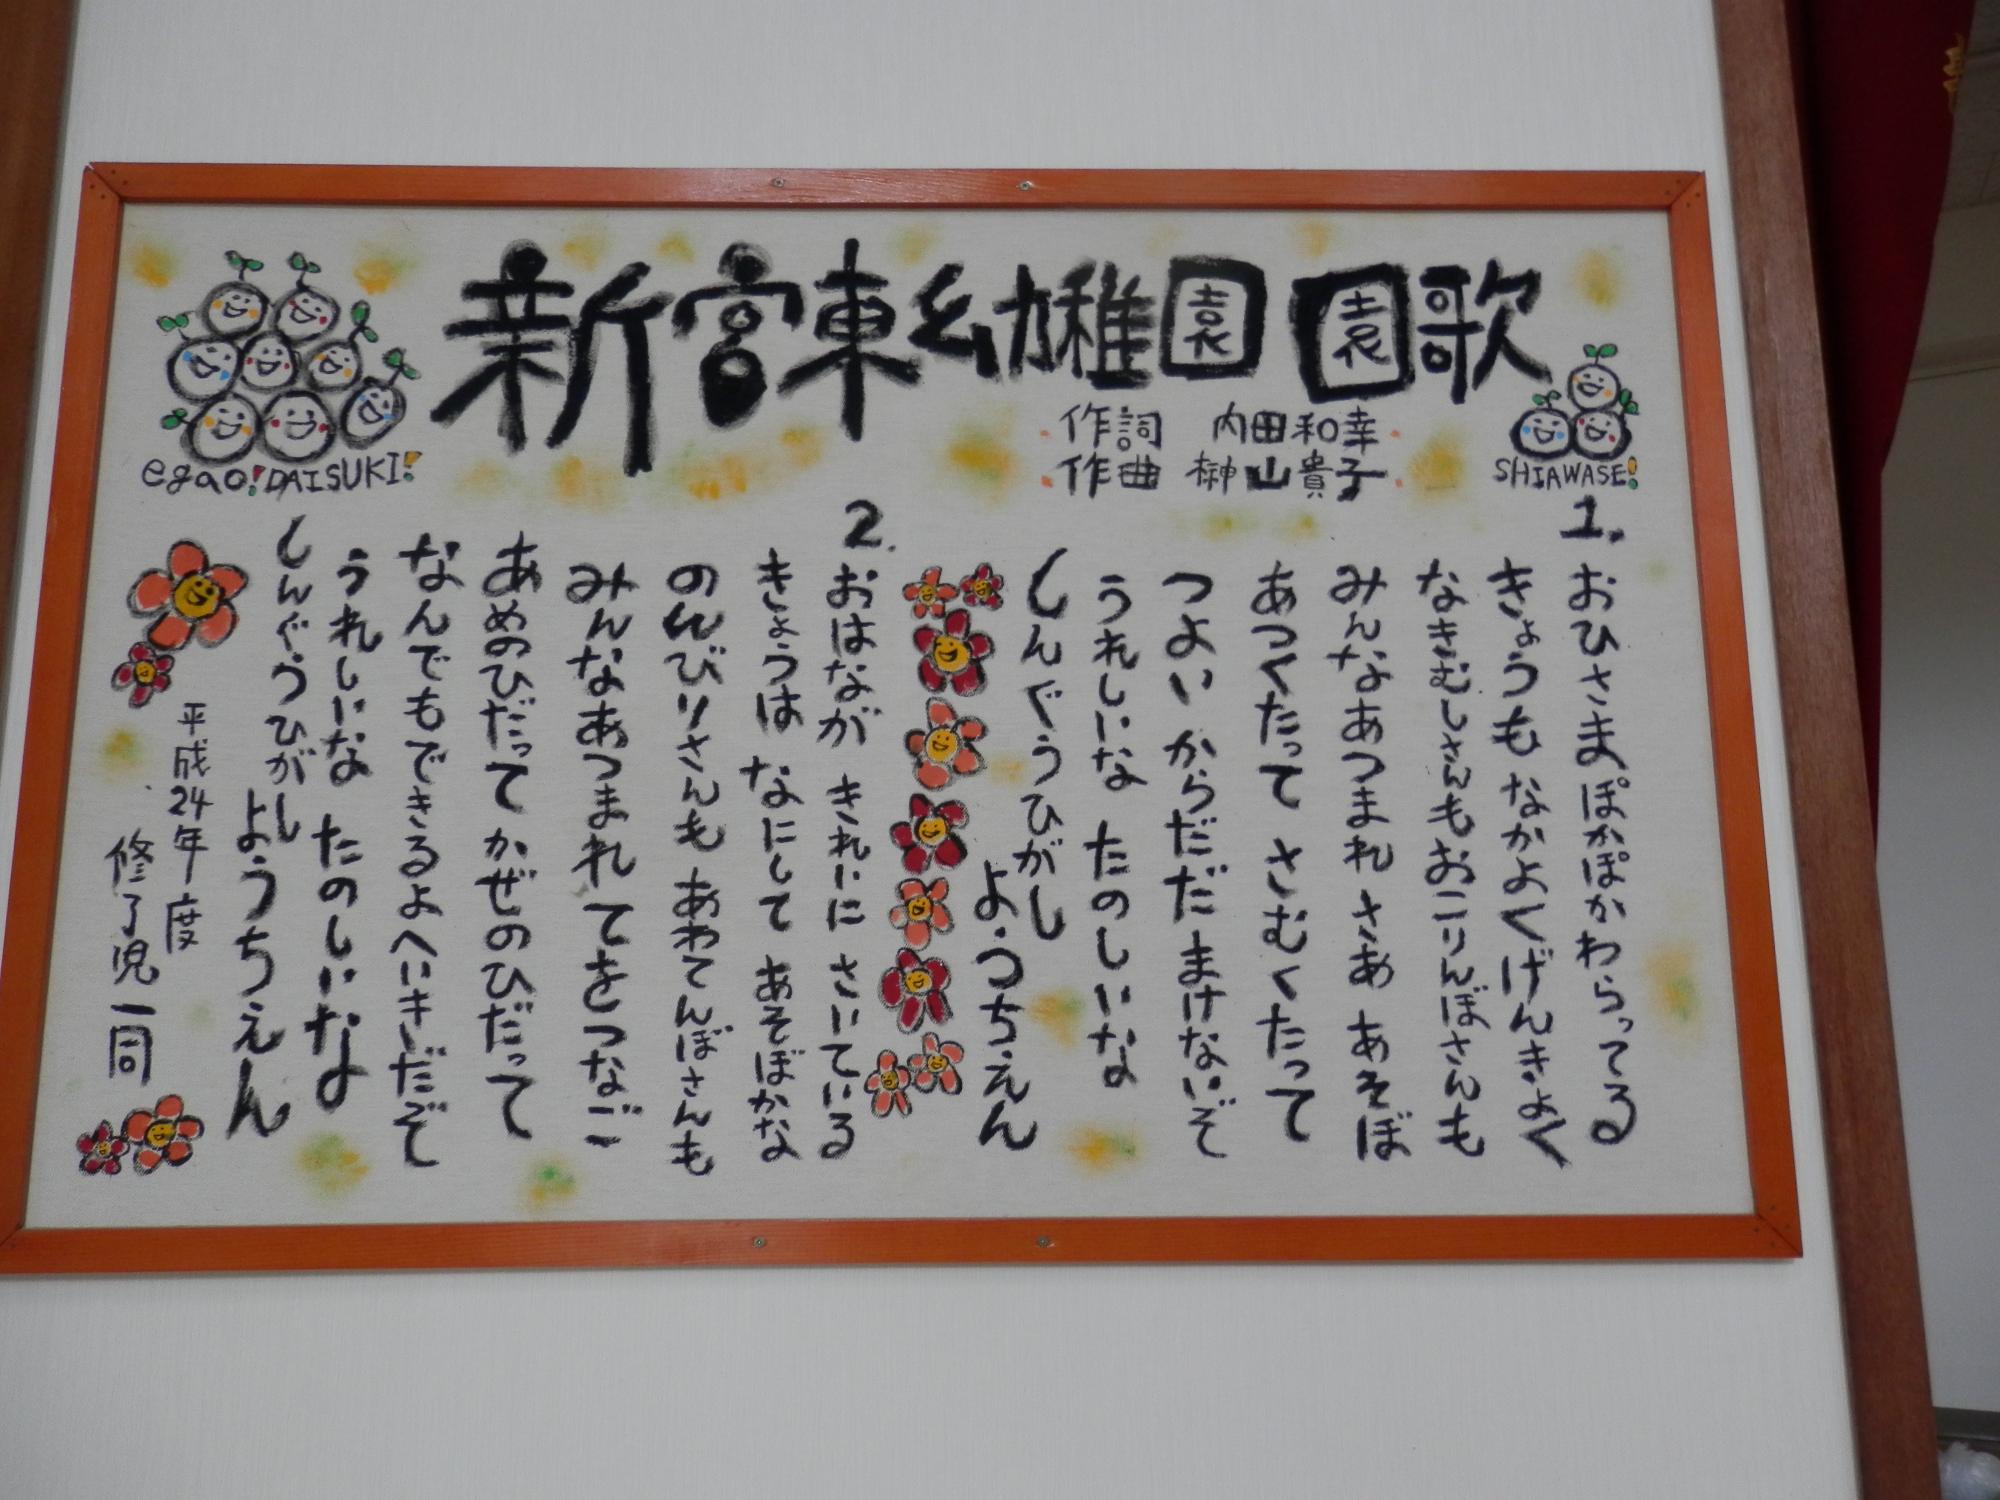 新宮東幼稚園 園歌
作詞 内田和幸
作曲 榊山貴子
egao!DAISUKI!
SHIAWASE!
1.
おひさまぽかぽかわらってる
きょうもなかよくげんきよく
なきむしさんもおこりんぼさんも
みんなあつまれ さあ あそぼ
あつくたって さむくたって
つよいからだだ まけないぞ
うれしいな たのしいな
しんぐうひがし
ようちえん
2.
おはなが きれいに さいている
きょうは なにして あそぼかな
のんびりさんも あわてんぼさんも
みんなあつまれ てをつなご
あめのひだって かぜのひだって
なんでもできるよ へいきだぞ
うれしいな たのしいな
しんぐうひがし
ようちえん
平成24年度
修了児一同